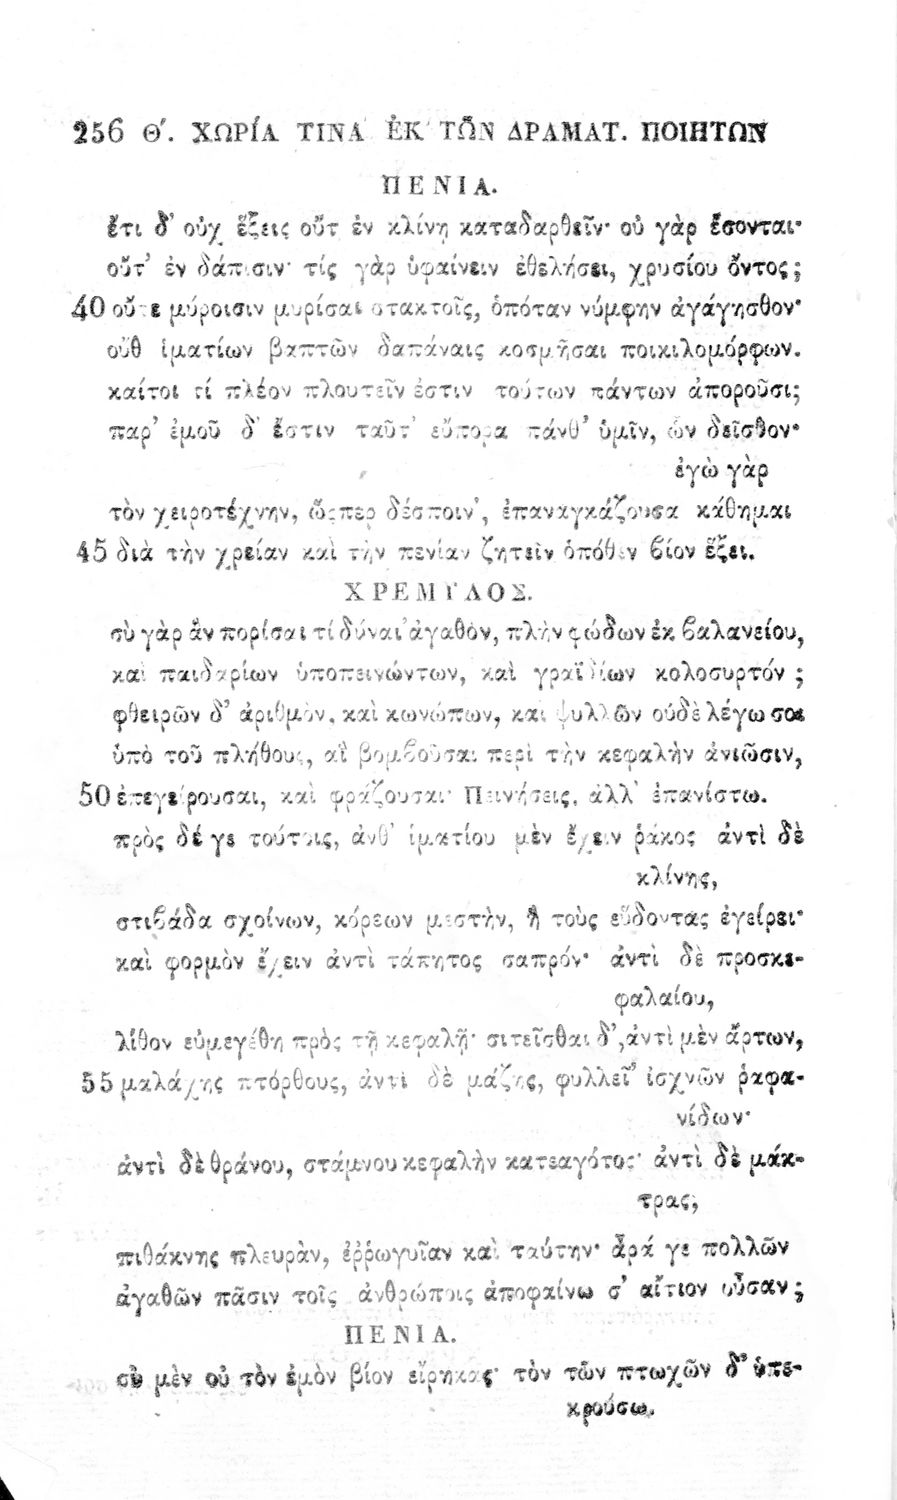 256 Θ΄. ΧΩΡΊΑ ΤΙΝΑ ἘΚ ΤΩ͂Ν ΔΡΑΜΑΤ. ΠΟΙΗΤΩΝ
ΠΕΝΙΑ.
ἔτι δ' οὐχ ἕξεις οὔτ ἐν κλίνῃ καταδαρθεῖν· οὐ γὰρ ἔσονται·
οὔτ' ἐν δάπισιν· τίς γὰρ ὑφαίνειν ἐθελήσει, χρυσίου ὄντος;
40 οὔτε μύροισιν μυρίσαι στακτοῖς, ὁπόταν νύμφην ἀγάγησθον·
οὔθ ἱματίων βαπτῶν δαπάναις κοσμῆσαι ποικιλομόρφων.
καίτοι τί πλέον πλουτεῖν ἐστιν τούτων πάντων ἀποροῦσι;
παρ' ἐμοῦ δ' ἔστιν ταῦτ' εὔπορα πάνθ' ὑμῖν, ὧν δεῖσθον·
ἐγὼ γὰρ
τὸν χειροτέχνην, ὥςπερ δέσποιν', ἐπαναγκάζουσα κάθημαι
45 διὰ τὴν χρείαν καὶ τὴν πενίαν ζητεῖν ὁπόθεν βίον ἕξει.
ΧΡΕΜΥΛΟΣ.
σὺ γὰρ ἂν πορίσαι τί δύναι' ἀγαθὸν, πλὴν φώδων ἐκ βαλανείου,
καὶ παιδαρίων ὑποπεινώντων, καὶ γραϊδίων κολοσυρτόν ;
φθειρῶν δ' ἀριθμὸν, καὶ κωνώπων, καὶ ψυλλῶν οὐδὲ λέγω σοι
ὑπὸ τοῦ πλήθους, αἳ βομβοῦσαι περὶ τὴν κεφαλὴν ἀνιῶσιν,
50 ἐπεγείρουσαι, καὶ φράζουσαι· Πεινήσεις, ἀλλ' ἐπανίστω.
πρὸς δέ γε τούτοις, ἀνθ' ἱματίου μὲν ἔχειν ῥάκος ἀντὶ δὲ
κλίνης,
στιβάδα σχοίνων, κόρεων μεστὴν, ἣ τοὺς εὕδοντας ἐγείρει·
καὶ φορμὸν ἔχειν ἀντὶ τάπητος σαπρόν· ἀντὶ δὲ προσκε-
φαλαίου,
λίθον εὐμεγέθη πρὸς τῇ κεφαλῇ· σιτεῖσθαι δ', ἀντὶ μὲν ἄρτων,
55 μαλάχης πτόρθους, ἀντὶ δὲ μάζης, φυλλεῖ' ἰσχνῶν ῥαφα-
νίδων·
ἀντὶ δὲ θράνου, στάμνου κεφαλὴν κατεαγότος· ἀντὶ δὲ μάκ-
τρας,
πιθάκνης πλευρὰν, ἐῤῥωγυῖαν καὶ ταύτην· ἆρά γε πολλῶν
ἀγαθῶν πᾶσιν τοῖς ἀνθρώποις ἀποφαίνω σ' αἴτιον οὖσαν ;
ΠΕΝΙΑ.
σὺ μὲν οὐ τὸν ἐμὸν βίον εἴρηκας· τὸν τῶν πτωχῶν δ' ὑπε-
κρούσω.